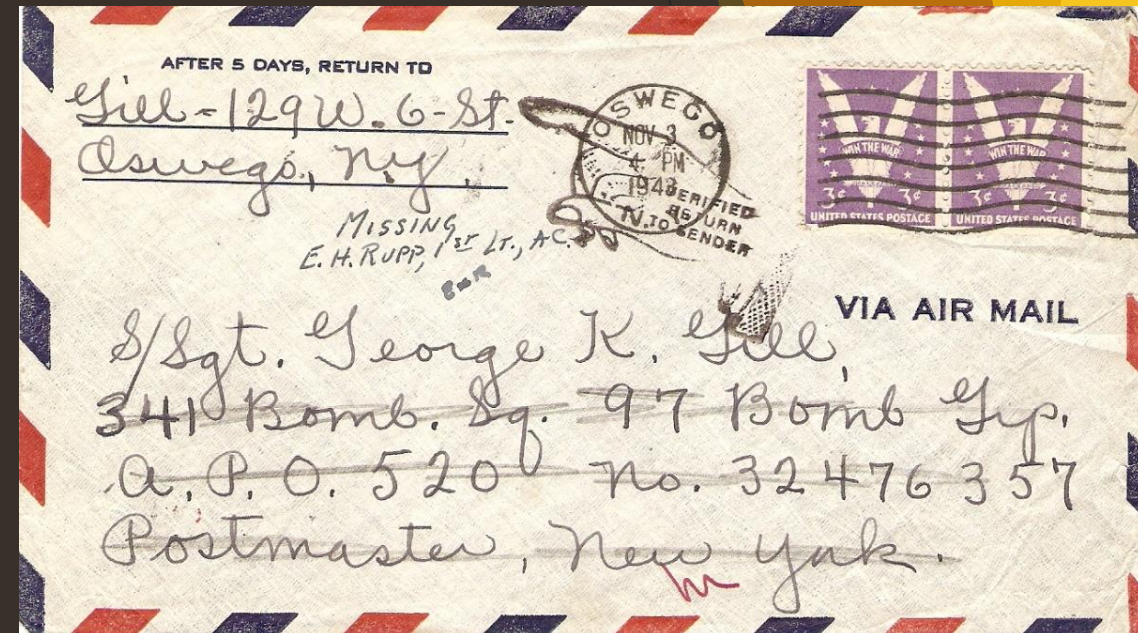 AFTER 5 DAYS, RETURN TO
Gill - 129 W. 6 - St.
Oswego, N.Y.
OSWEGO
NOV 3
4 PM
1943
N.Y.
VERIFIED
RETURN
TO SENDER
WIN THE WAR WIN THE WAR
3¢ 3¢ 3¢ 3¢
UNITED STATES POSTAGE UNITED STATES POSTAGE
MISSING
E. H. RUPP, 1ST LT., A.C.
VIA AIR MAIL
S/Sgt. George K. Gill,
341 Bomb. Sq. 97 Bomb Grp.
A.P.O. 520 No. 32476357
Postmaster, New York.